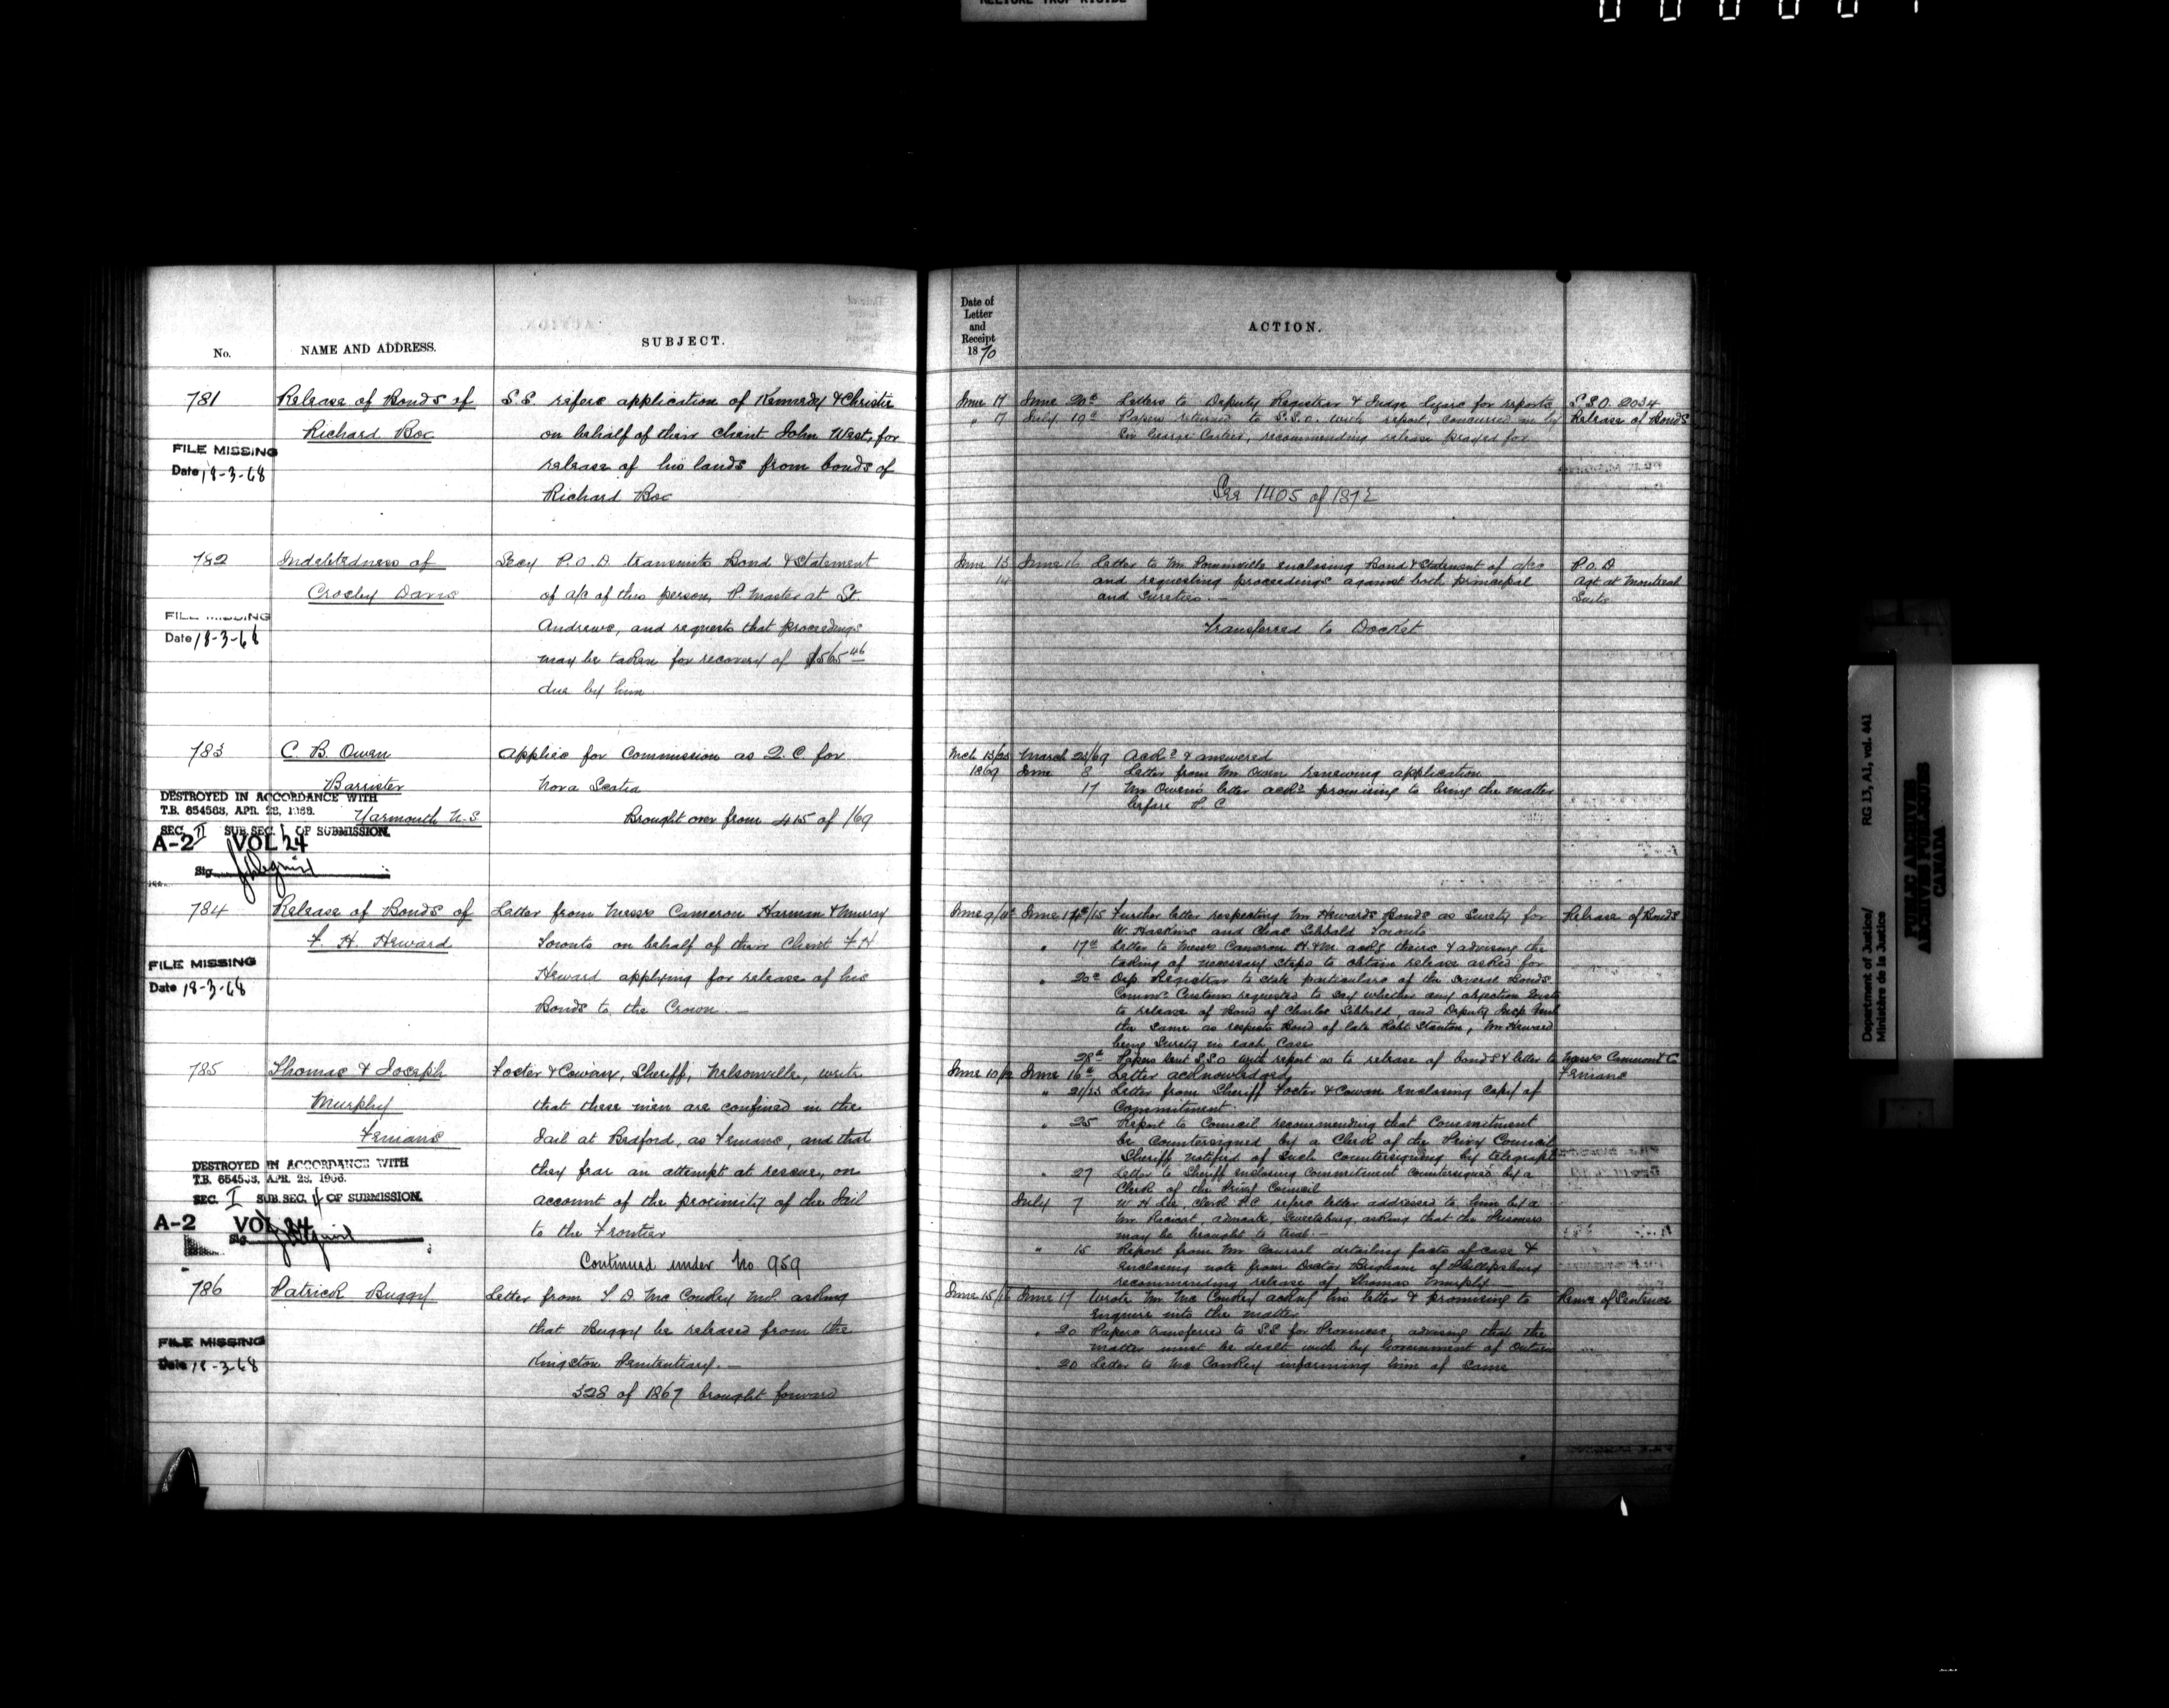 No.
NAME AND ADDRESS.
SUBJECT.
781
Release of Bonds of
Richard Boc
FILE MISSING
Date 18-3-68
S.S. refers application of Kennedy & Christie
on behalf of their client John West, for
release of his lands from bonds of
Richard Boc
782
Indebtedness of
Crosby Davis
MISSING
Date 18-3-68
Secy P.O.D. transmits Bond & Statement
of a/c of this person, P. Master at St.
Andrews, and requests that proceedings
may be taken for recovery of $565 46
due by him
783
C. B. Owen
Barrister
Yarmouth N.S
DESTROYED IN ACCORDANCE WITH
T.B. 654563, APR. 28, 1966.
SEC. II SUB.SEC. 1 OF SUBMISSION.
A-2 VOL 24
Sig.
Applies for Commission as Q.C. for
Nova Scotia
Brought over from 415 of /69
784
Release of Bonds of
F. H. Heward
FILE MISSING
Date 18-3-68
Letter from Messrs Cameron Harman & Murray
Toronto on behalf of their Client F H
Heward applying for release of his
Bonds to the Crown. —
785
Thomas & Joseph
Murphy
Fenians
DESTROYED IN ACCORDANCE WITH
T.B. 654563, APR. 28, 1966.
SEC. I SUB.SEC. 4 OF SUBMISSION.
A-2 VOL 24
Sig
Foster & Cowan, Sheriff, Nelsonville, write
that these men are confined in the
Jail at Bedford, as Fenians, and that
they fear an attempt at rescue, on
account of the proximity of the Jail
to the Frontier
Continued under No 959
786
Patrick Buggy
FILE MISSING
Date 18-3-68
Letter from T. D. McConkey M.P. asking
that Buggy be released from the
Kingston Penitentiary. —
328 of 1867 brought forward
Date of
Letter
and
Receipt
1870
ACTION.
June 17 June 20th Letters to Deputy Registrar & Judge for reports S.S.O. 2034
" 17 July 19th Papers returned to S.S.O. with report, concurred in by Release of Bonds
Sir George Cartier, recommending release prayed for
See 1405 of 1872
June 13 June 16 Letter to Mr. enclosing Bond & Statement of a/cs P.O.D
14 and requesting proceedings against both principal Agt. at Montreal
and Sureties. — Suits
Transferred to Docket
Mch 13/23 March 23/69 Ackd & answered
1869 June 8 Letter from Mr. Owen renewing application
17 Mr Owen's letter ackd promising to bring the matter
before P.C
June 9/11th June 14th/15 Further letter respecting Mr Hewards Bonds as Surety for Release of Bonds
W. Haskins and Chas Sibbald Toronto
" 17th Letter to Messrs Cameron H. & M. ackg theirs & advising the
taking of necessary steps to obtain release asked for
" 20th Dep Registrar to state particulars of the several Bonds
Commr Customs requested to say whether any objection exists
to release of Bond of Charles Sibbald, and Deputy Insp Genl
the same as respects Bond of late Robt Stanton, Mr Heward
being Surety in each case
28th Papers sent S.S.O with report as to release of bonds & letter to Messrs Cameron & C
June 10/12 June 16th Letter acknowledged Fenians
" 21/23 Letter from Sheriff Foster & Cowan enclosing copy of
Commitment
" 25 Report to Council recommending that Commitment
be Countersigned by a Clerk of the Privy Council
Sheriff notified of such countersigning by telegraph
" 27 Letter to Sheriff enclosing Commitment countersigned by a
Clerk of the Privy Council
July 7 W. H. Lee, Clerk P.C. refers letter addressed to him by a
Mr. Racicot, advocate, Sweetsburg, asking that the Prisoners
may be brought to trial. —
" 15 Report from Mr. Coursol detailing facts of case &
enclosing note from Doctor Brigham of Phillipsburg
recommending release of Thomas Murphy
June 15/16 June 17 Wrote Mr McConkey ackng his letter & promising to Remn of Sentence
enquire into the matter
" 20 Papers transferred to S.S for Provinces, advising that the
matter must be dealt with by Government of Ontario
" 20 Letter to McConkey informing him of same
Department of Justice/
Ministère de la Justice
RG 13, A1, vol. 441
PUBLIC ARCHIVES
ARCHIVES PUBLIQUES
CANADA